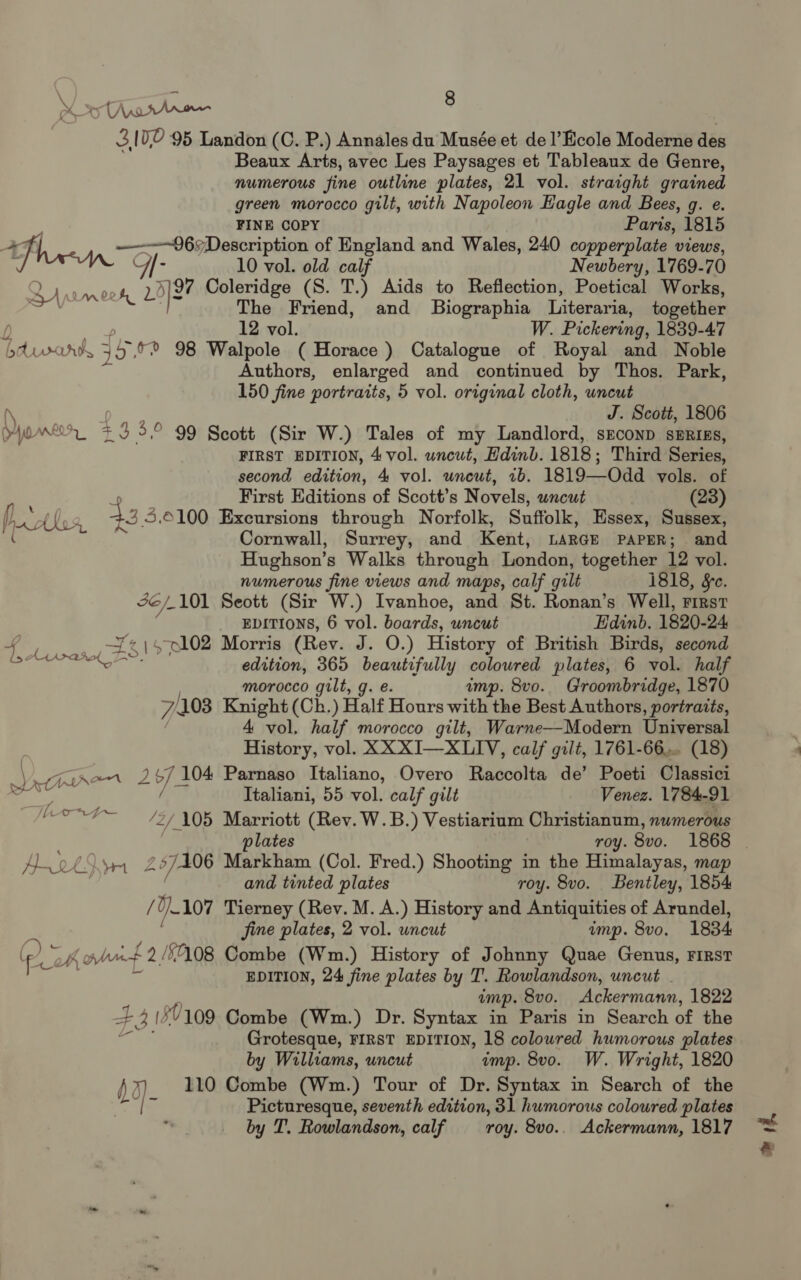 8
3,10,0 95 Landon (C. P.) Annales du Musée et de l'École Moderne des
Beaux Arts, avec Les Paysages et Tableaux de Genre,
numerous fine outline plates, 21 vol. straight grained
green morocco gilt, with Napoleon Eagle and Bees, g. e.
FINE COPY Paris, 1815
96 Description of England and Wales, 240 copperplate views,
10 vol. old calf Newbery, 1769-70
97 Coleridge (S. T.) Aids to Reflection, Poetical Works,
The Friend, and Biographia Literaria, together
12 vol. W. Pickering, 1839-47
98 Walpole (Horace) Catalogue of Royal and Noble
Authors, enlarged and continued by Thos. Park,
150 fine portraits, 5 vol. original cloth, uncut
J. Scott, 1806
99 Scott (Sir W.) Tales of my Landlord, SECOND SERIES,
FIRST EDITION, 4 vol. uncut, Edinb. 1818; Third Series,
second edition, 4 vol. uncut, ib. 1819—Odd vols. of
First Editions of Scott's Novels, uncut (23)
100 Excursions through Norfolk, Suffolk, Essex, Sussex,
Cornwall, Surrey, and Kent, LARGE PAPER; and
Hughson's Walks through London, together 12 vol.
numerous fine views and maps, calf gilt 1818, &c.
36/- 101 Scott (Sir W.) Ivanhoe, and St. Ronan's Well, FIRST
EDITIONS, 6 vol. boards, uncut Edinb. 1820-24
102 Morris (Rev. J. O.) History of British Birds, second
edition, 365 beautifully coloured plates, 6 vol. half
morocco gilt, g. e. imp. 8vo. Groombridge, 1870
7/ 103 Knight (Ch.) Half Hours with the Best Authors, portraits,
4 vol. half morocco gilt, Warne—Modern Universal
History, vol. XXXI—XLIV, calf gilt, 1761-66... (18)
104 Parnaso Italiano, Overo Raccolta de' Poeti Classici
Italiani, 55 vol. calf gilt Venez. 1784-91
12/ 105 Marriott (Rev. W. B.) Vestiarium Christianum, numerous
plates roy. 8vo. 1868
106 Markham (Col. Fred.) Shooting in the Himalayas, map
and tinted plates roy. 8vo. Bentley, 1854
107 Tierney (Rev. M. A.) History and Antiquities of Arundel,
fine plates, 2 vol. uncut imp. 8vo. 1834
108 Combe (Wm.) History of Johnny Quae Genus, FIRST
EDITION, 24 fine plates by T. Rowlandson, uncut
imp. 8vo. Ackermann, 1822
109 Combe (Wm.) Dr. Syntax in Paris in Search of the
Grotesque, FIRST EDITION, 18 coloured humorous plates
by Williams, uncut imp. 8vo. W. Wright, 1820
110 Combe (Wm.) Tour of Dr. Syntax in Search of the
Picturesque, seventh edition, 31 humorous coloured plates
by T. Rowlandson, calf roy. 8vo. Ackermann, 1817